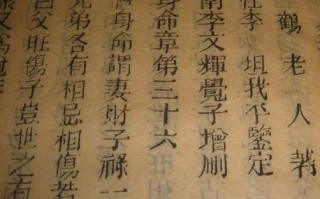 鶴老人著
江李坦我平鑒定
南李文輝覺子增刪
身命章第三十六
身命謂妻財子祿一
兄弟各有相忌相傷若
父旺傷子豈世之有